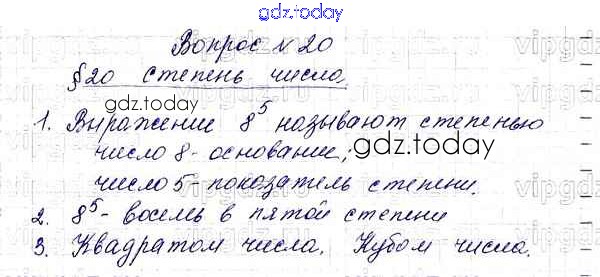 gdz.today
Вопрос № 20
§20 степень числа.
gdz.today
1. Выражение 8^5 называют степенью
gdz.today
число 8 - основание;
число 5 - показатель степени.
2. 8^5 - восемь в пятой степени
3. Квадратом числа. Кубом числа.